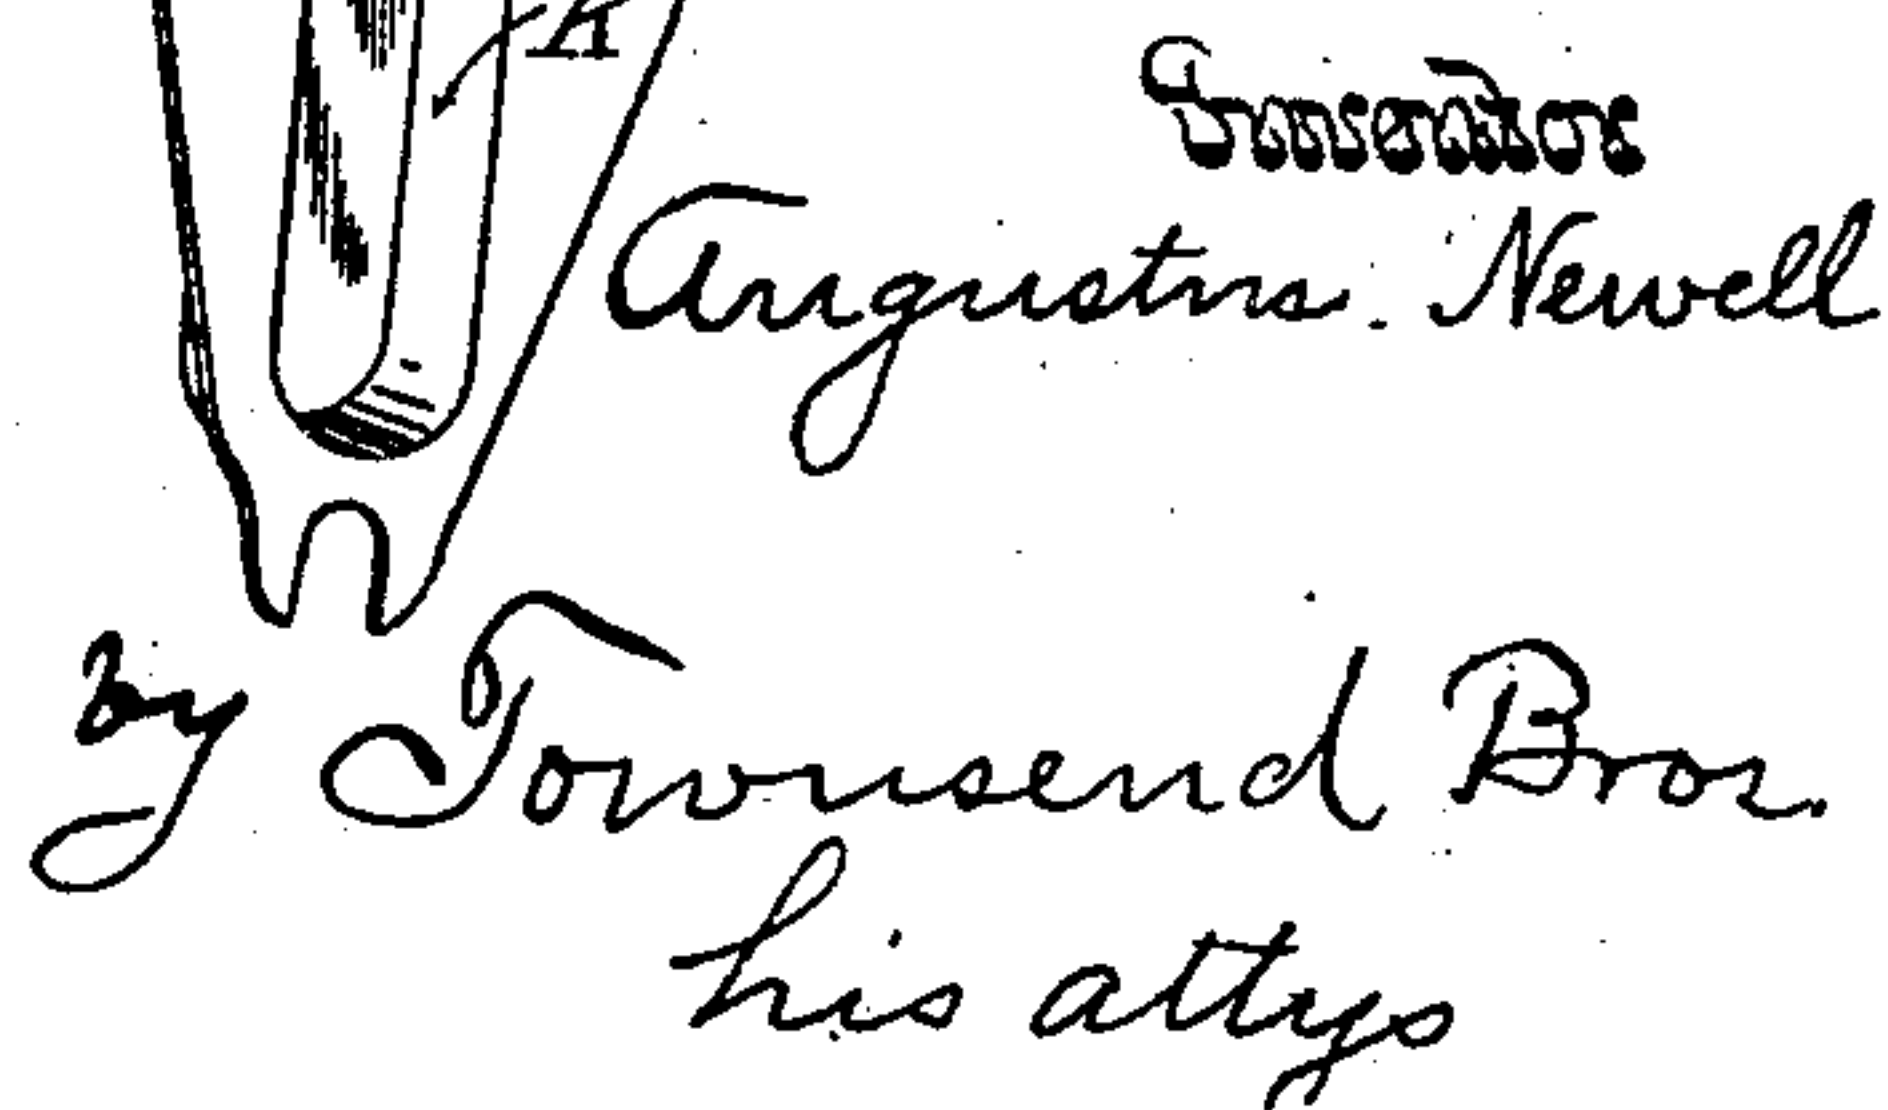 A
Inventor
Augustus Newell
by Townsend Bros.
his attys